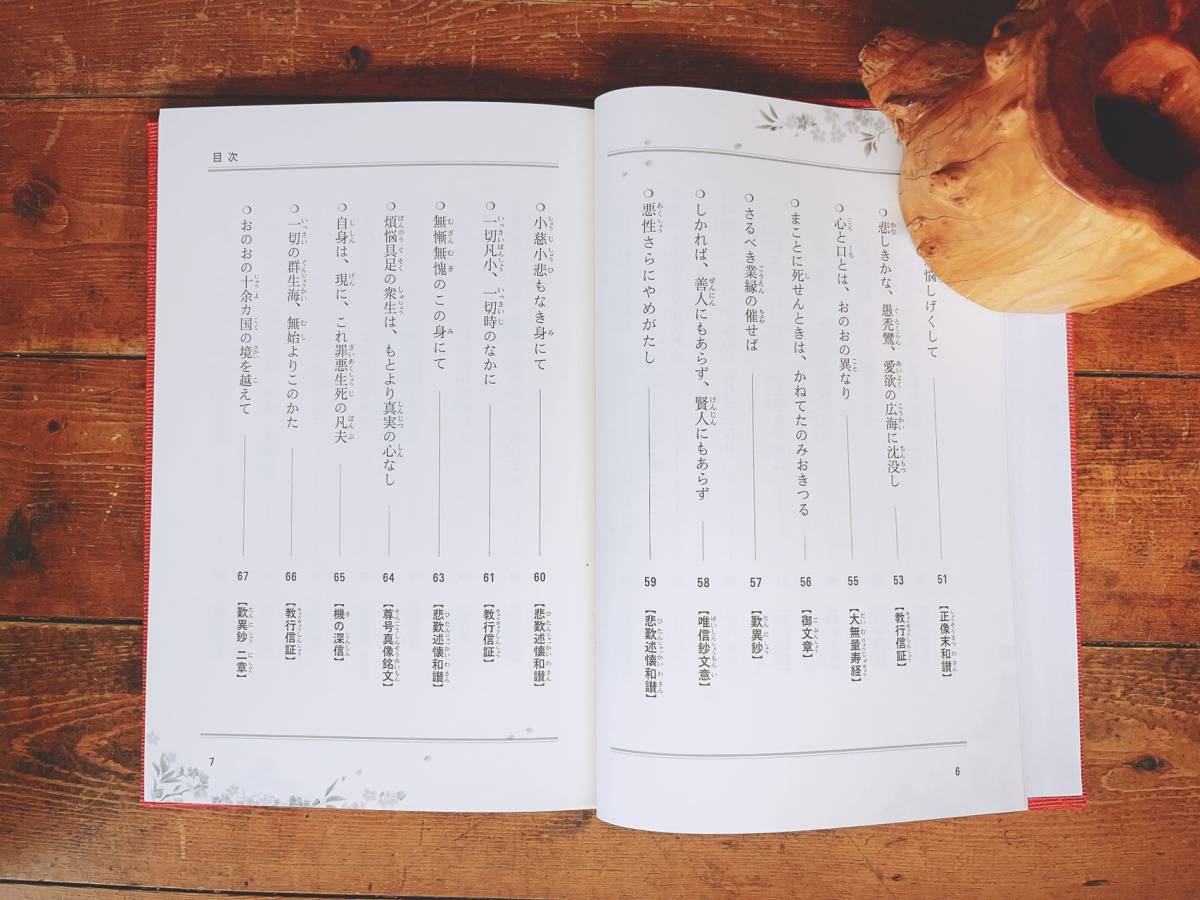 悩しげくして 51 【正像末和讃】
悲しきかな、愚禿鸞、愛欲の広海に沈没し 53 【教行信証】
心と口とは、おのおの異なり 55 【大無量寿経】
まことに死せんときは、かねてたのみおきつる 56 【御文章】
さるべき業縁の催せば 57 【歎異鈔】
しかれば、善人にもあらず、賢人にもあらず 58 【唯信鈔文意】
悪性さらにやめがたし 59 【悲歎述懐和讃】
6
目次
小慈小悲もなき身にて 60 【悲歎述懐和讃】
一切凡小、一切時のなかに 61 【教行信証】
無慚無愧のこの身にて 63 【悲歎述懐和讃】
煩悩具足の衆生は、もとより真実の心なし 64 【尊号真像銘文】
自身は、現に、これ罪悪生死の凡夫 65 【機の深信】
一切の群生海、無始よりこのかた 66 【教行信証】
おのおの十余カ国の境を越えて 67 【歎異鈔 二章】
7